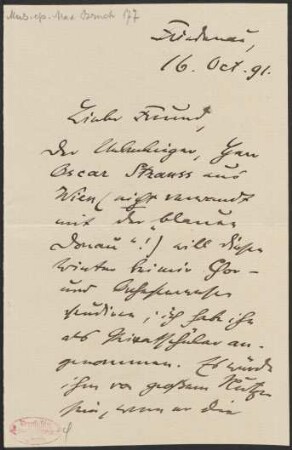 Mus. ep. Max Bruch 77
Friedenau,
16. Oct. 91.
Lieber Freund,
Der Ueberbringer, Herr
Oscar Strauss aus
Wien (nicht verwandt
mit der „blauen
Donau"!) will diesen
Winter bei mir Chor-
und Orchesterwesen
studiren; ich habe ihn
als Privatschüler an-
genommen. Es würde
ihm von großem Nutzen
sein, wenn er die